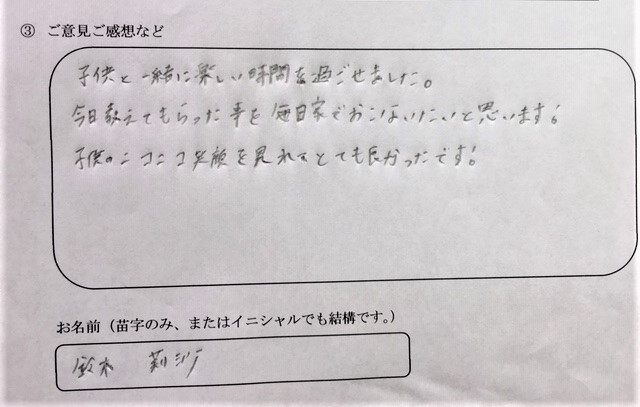 ③ ご意見ご感想など
子供と一緒に楽しい時間を過ごせました。
今日教えてもらった事を毎日家でおこないたいと思います!
子供のニコニコ笑顔を見れてとても良かったです!
お名前（苗字のみ、またはイニシャルでも結構です。）
鈴木